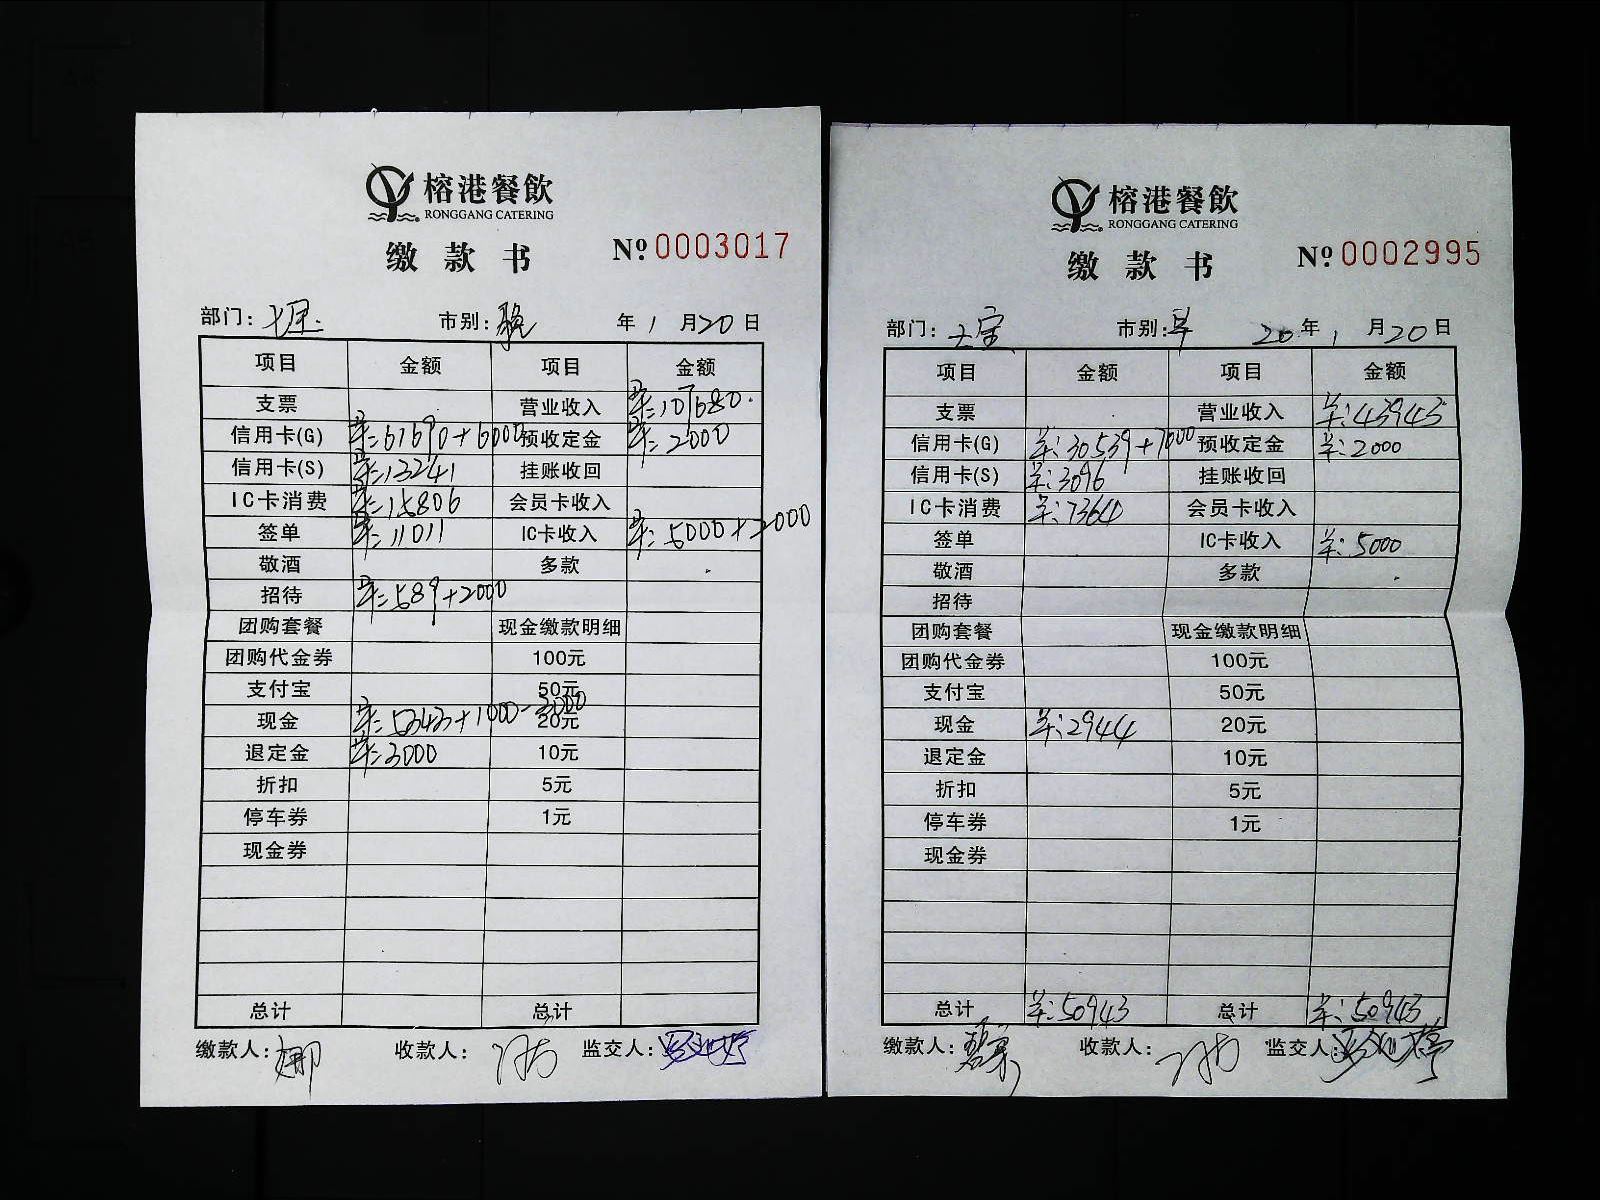 榕港餐飲
RONGGANG CATERING
缴款书 Nº 0003017
部门: 市别: 晚 年 1 月 20 日
项目 金额 项目 金额
支票 营业收入 羊:107680.
信用卡(G) 羊:61690+6000 预收定金 羊:2000
信用卡(S) 羊:13241 挂账收回
IC卡消费 羊:15806 会员卡收入
签单 羊:11011 IC卡收入 羊:5000+2000
敬酒 多款
招待 羊:589+2000
团购套餐 现金缴款明细
团购代金券 100元
支付宝 50元
现金 羊:5343+1000-3000 20元
退定金 羊:3000 10元
折扣 5元
停车券 1元
现金券
总计 总计
缴款人: 娜 收款人: 监交人:
榕港餐飲
RONGGANG CATERING
缴款书 Nº 0002995
部门: 市别: 早 20 年 1 月 20 日
项目 金额 项目 金额
支票 营业收入 羊:43943
信用卡(G) 羊:30539+7000 预收定金 羊:2000
信用卡(S) 羊:3096 挂账收回
IC卡消费 羊:7364 会员卡收入
签单 IC卡收入 羊:5000
敬酒 多款
招待
团购套餐 现金缴款明细
团购代金券 100元
支付宝 50元
现金 羊:2944 20元
退定金 10元
折扣 5元
停车券 1元
现金券
总计 羊:50943 总计 羊:50943
缴款人: 收款人: 监交人: